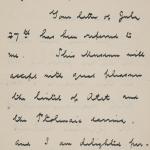 Your letter of July
27th has been referred to
me. This Museum will
accept with great pleasure
the lintel of Atet and
the Ptolemaic
and I am delighted per-